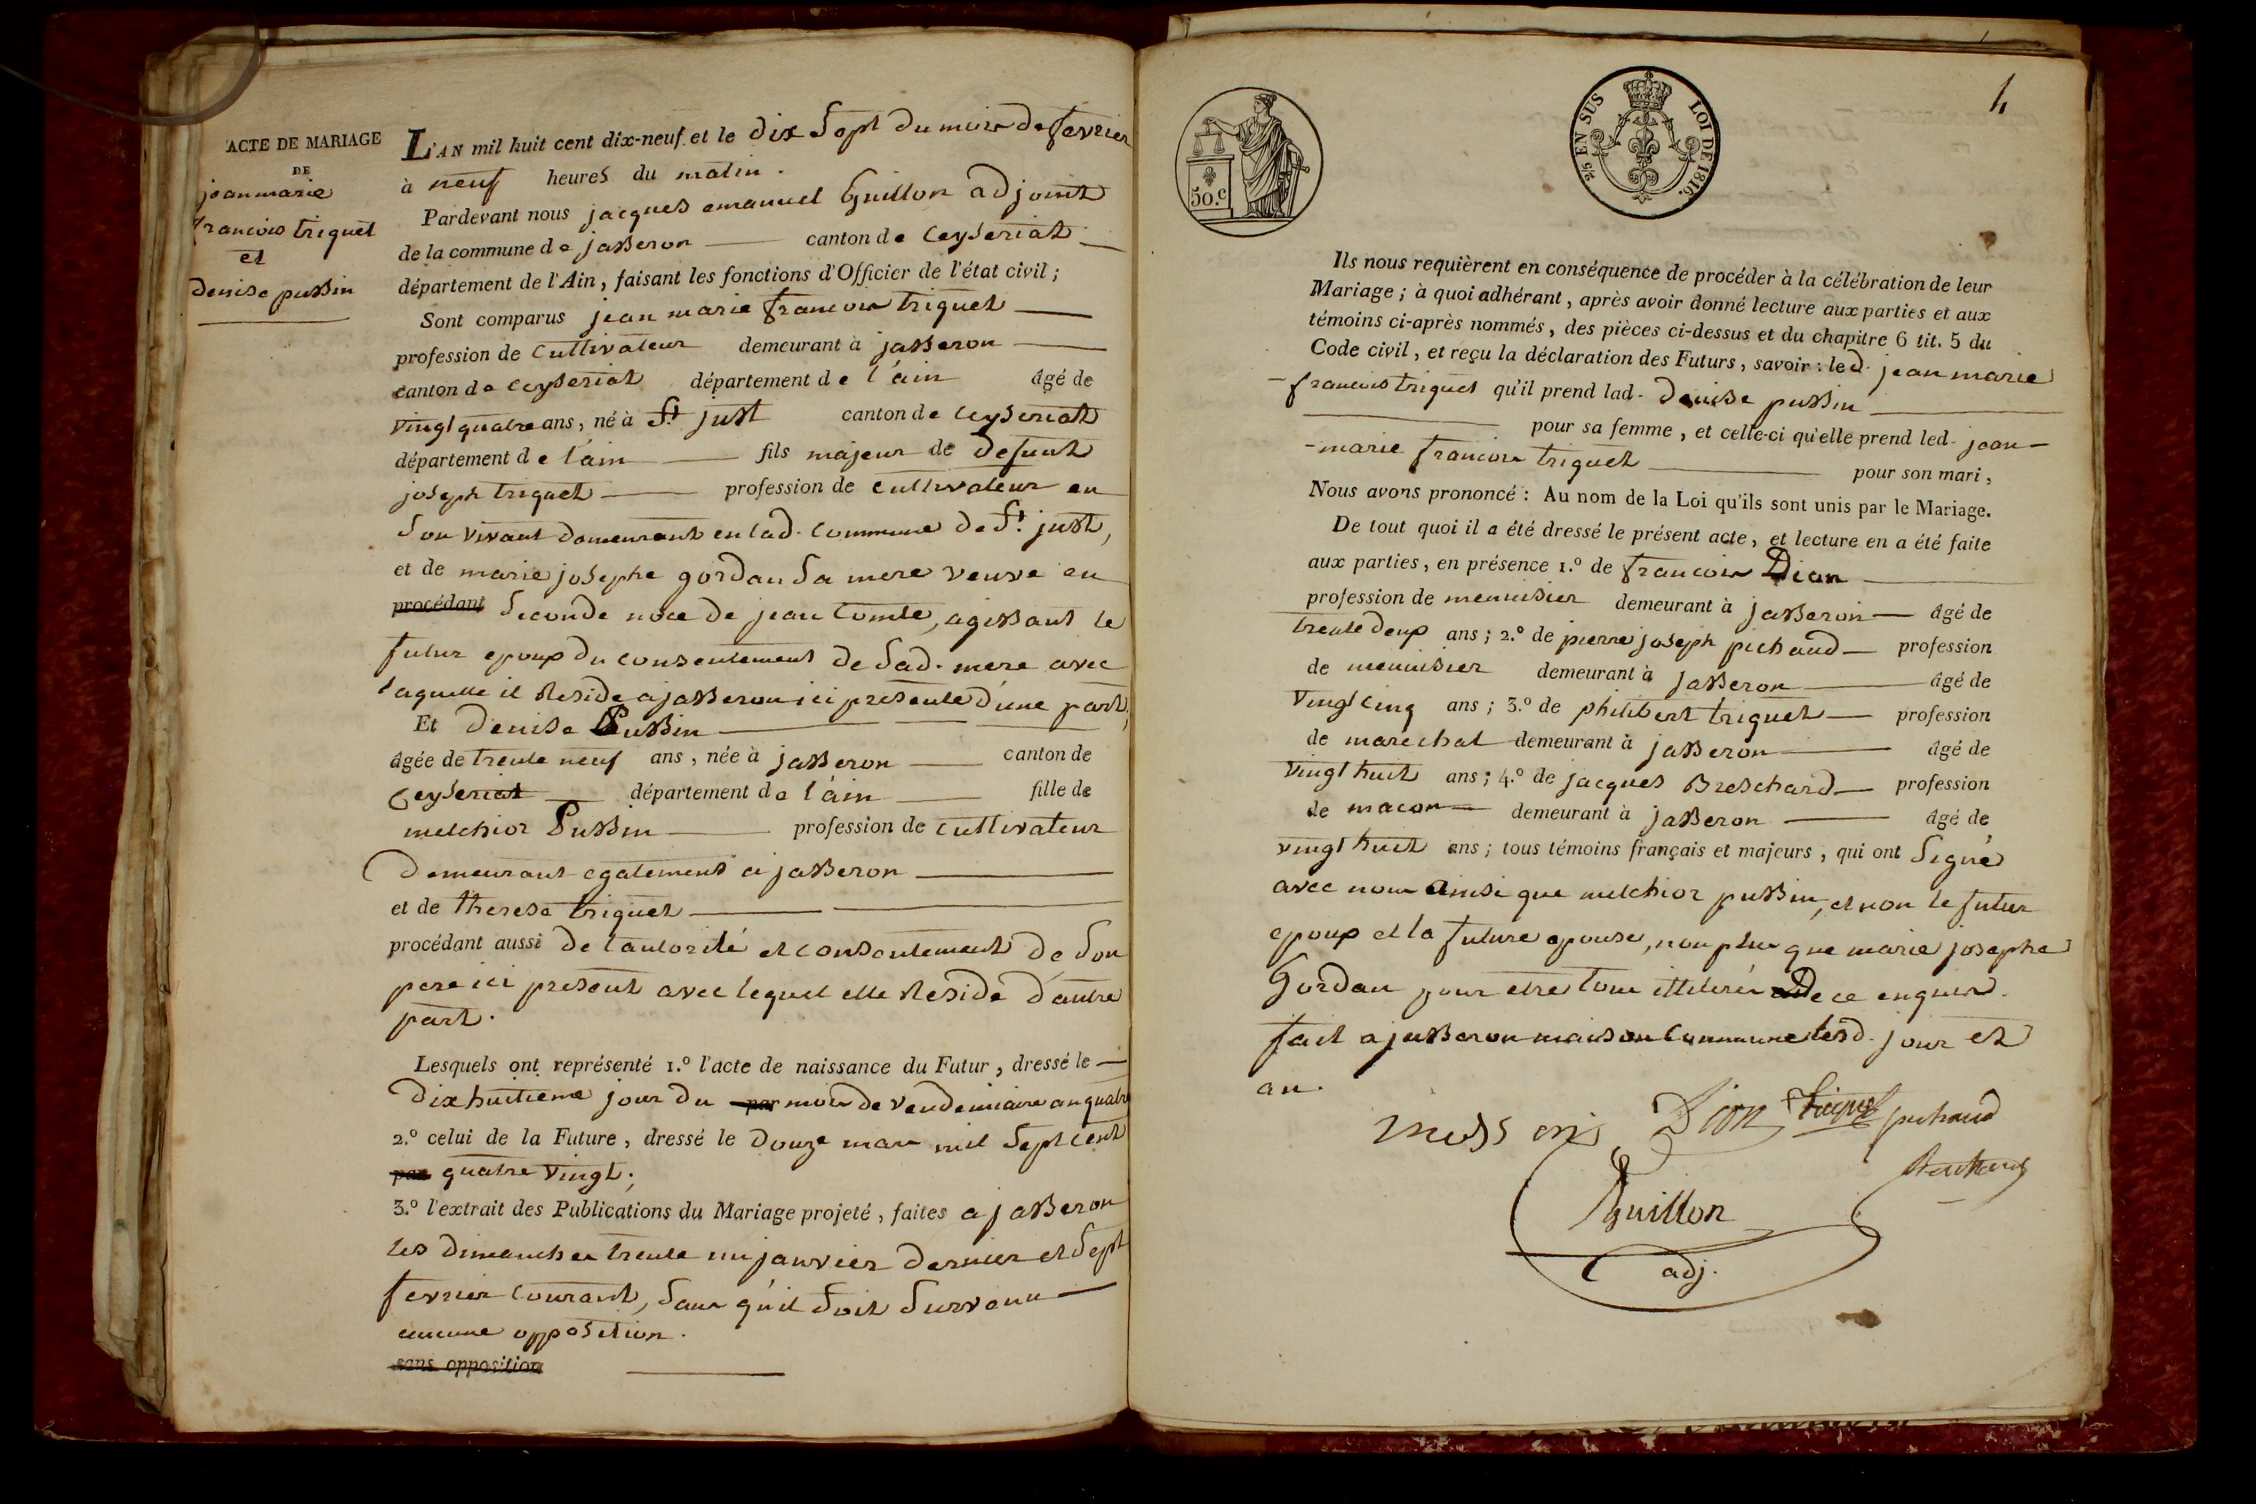 ACTE DE MARIAGE
DE
jean marie
francois triquet
et
denise pussin
L'AN mil huit cent dix-neuf et le dix Sept du mois de fevrier
à neuf heures du matin.
Pardevant nous jacques emanuel Guillon adjoint
de la commune de jasseron canton de Ceyseriat
département de l'Ain, faisant les fonctions d'Officier de l'état civil;
Sont comparus jean marie francois triquet
profession de Cultivateur demeurant à jasseron
canton de Ceyseriat département de l'ain âgé de
vingt quatre ans, né à St just canton de Ceyseriat
département de l'ain fils majeur de defunt
joseph triquet profession de cultivateur en
Son vivant demeurant en lad. commune de St. just,
et de marie josephe gordan Sa mere veuve en
procédant Seconde noce de jean Comte, agissant le
futur epoux du consentement de Sad. mere avec
laquelle il Reside a jasseron ici presente d'une part,
Et denise Pussin
âgée de trente neuf ans, née à jasseron canton de
Ceyseriat département de l'ain fille de
melchior Pussin profession de cultivateur
Demeurant egalement a jasseron
et de therese triquet
procédant aussi de l'autorité et consentement de Son
pere ici present avec lequel elle Reside d'autre
part.
Lesquels ont représenté 1.º l'acte de naissance du Futur, dressé le
dix huitieme jour du par mois de vendemiaire an quatre
2.º celui de la Future, dressé le douze mars mil Sept cent
par quatre vingt;
3.º l'extrait des Publications du Mariage projeté, faites a jasseron
les dimanches trente un janvier dernier et Sept
fevrier Courant, Sans qu'il Soit Survenu
aucune opposition.
sans opposition
50.c
2/5 EN SUS
LOI DE 1816.
4
Ils nous requièrent en conséquence de procéder à la célébration de leur
Mariage; à quoi adhérant, après avoir donné lecture aux parties et aux
témoins ci-après nommés, des pièces ci-dessus et du chapitre 6 tit. 5 du
Code civil, et reçu la déclaration des Futurs, savoir: led. jean marie
francois triquet qu'il prend lad. Denise pussin
pour sa femme, et celle-ci qu'elle prend led. jean
marie francois triquet pour son mari,
Nous avons prononcé: Au nom de la Loi qu'ils sont unis par le Mariage.
De tout quoi il a été dressé le présent acte, et lecture en a été faite
aux parties, en présence 1.º de francois Dion
profession de menuisier demeurant à jasseron âgé de
trente deux ans; 2.º de pierre joseph pichaud profession
de menuisier demeurant à jasseron âgé de
vingt cinq ans; 3.º de philibert triquet profession
de marechal demeurant à jasseron âgé de
vingt huit ans; 4.º de jacques Breschard profession
de macon demeurant à jasseron âgé de
vingt huit ans; tous témoins français et majeurs, qui ont Signé
avec nous ainsi que melchior pussin, et non le futur
epoux et la future epouse, non plus que marie josephe
Gordan pour etre tous illiterés De ce enquis.
fait a jasseron maison Commune lesd. jour et
an.
Dion triquet pichaud
Guillon
adj.